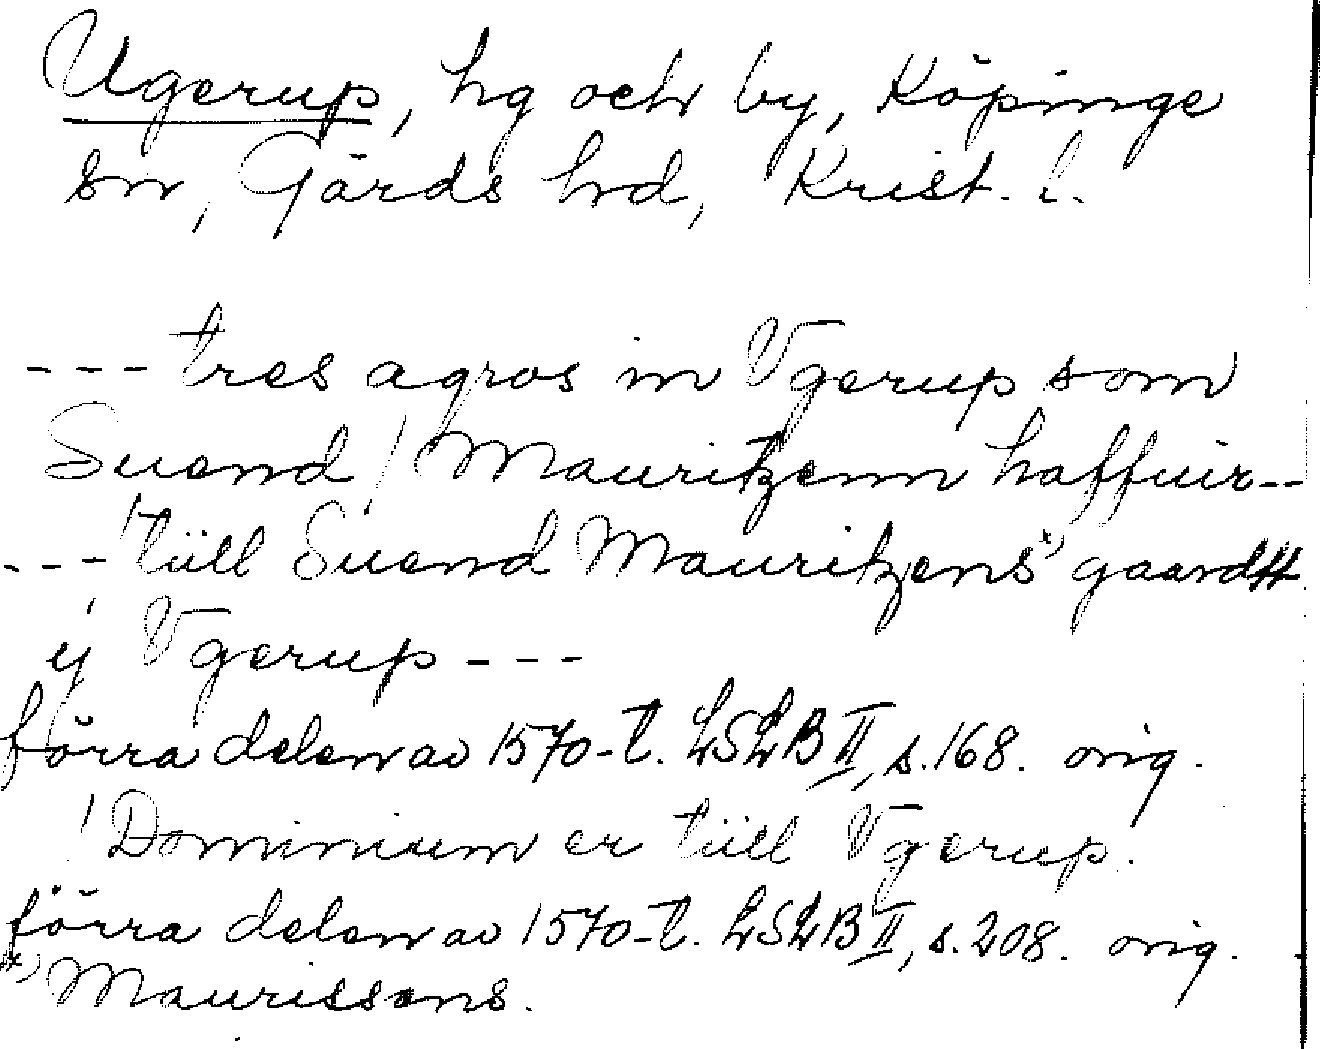 Ugerup, hg och by, Köpinge
sn, Gärds hrd, Krist. l.
--- tres agros in Vgerup som
Suend / Mauritzenn haffuir--
--- / tüll Suend Mauritzens x) gaardtt
ÿ Vgerup ---
förra delen av 1570-t. LSLB II, s. 168. orig.
/ Dominium er tüll Vgerup.
förra delen av 1570-t. LSLB II, s. 208. orig.
x) Maurissens.